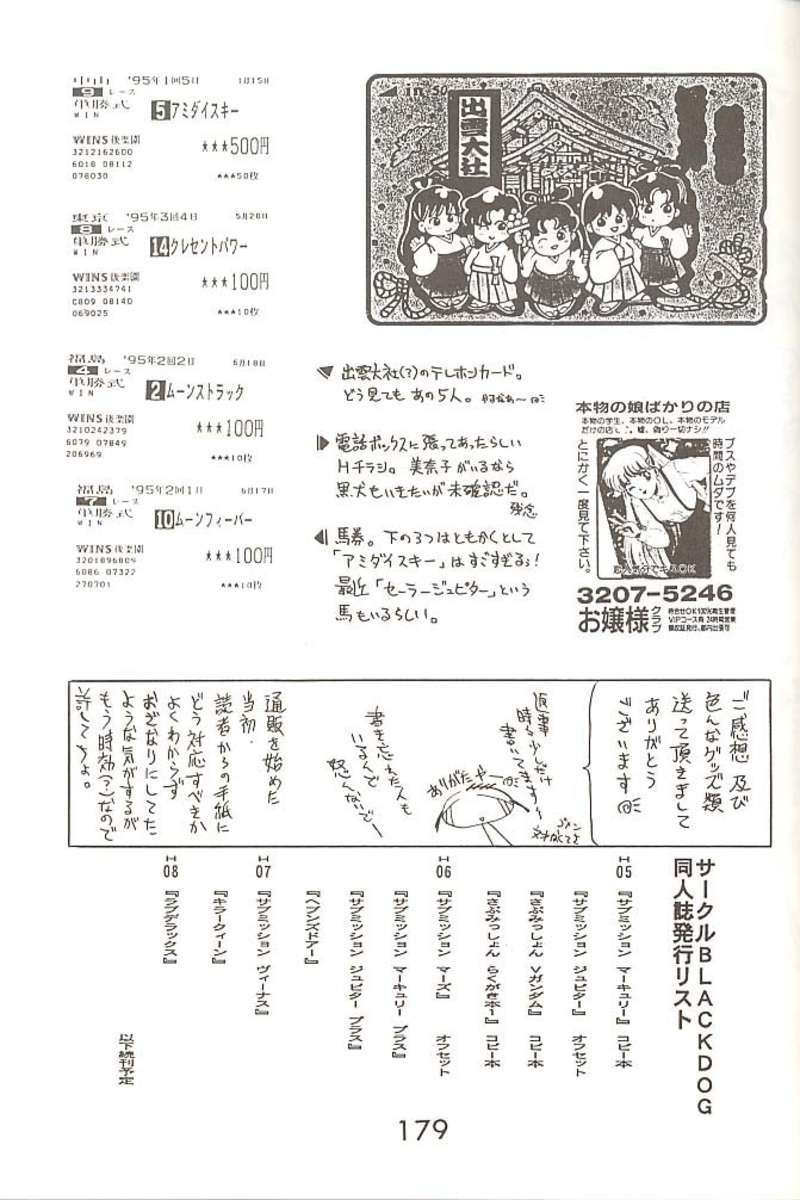 中山 '95年1回5日 1月15日
9 レース
単勝式 5 アミダイスキー
WIN
WINS後楽園 ★★★500円
3212162600
6018 08112
078030 ★★★50枚
東京 '95年3回4日 5月28日
8 レース
単勝式 14 クレセントパワー
WIN
WINS後楽園 ★★★100円
3213334741
C809 08140
069025 ★★★10枚
福島 '95年2回2日 6月18日
4 レース
単勝式 2 ムーンストラック
WIN
WINS後楽園 ★★★100円
3210242379
6079 07849
206969 ★★★10枚
福島 '95年2回1日 6月17日
7 レース
単勝式 10 ムーンフィーバー
WIN
WINS後楽園 ★★★100円
3201896809
6086 07322
270701 ★★★10枚
in 50
出雲大社
出雲大社(?)のテレホンカード。
どう見てもあの5人。
電話ボックスに張ってあったらしい
Hチラシ。美奈子がいるなら
黒犬もいきたいが未確認だ。
残念
馬券。下の3つはともかくとして
「アミダイスキー」はすごすぎるぅ!
最近「セーラージュピター」という
馬もいるらしい。
本物の娘ばかりの店
本物の学生、本物のOL、本物のモデル
だけの店です。嘘、偽り一切ナシ!!
ブスやデブを何人見ても
時間のムダです!
とにかく一度見て下さい。
3207-5246
お嬢様クラブ
待合せOK100%衛生管理
VIPコース有 24時間営業
領収証発行、都内出張可
ご感想 及び
色んなグッズ類
送って頂きまして
ありがとう
ございます
返事
時々少しだけ
書いてます〜
ありがたやー
書き忘れた人も
いるんで
怒んないでー
通販を始めた
当初、
読者からの手紙に
どう対応すべきか
よくわからず
おざなりにしてた
ような気がするが
もう時効(?)なので
許してちょ。
サークルBLACKDOG
同人誌発行リスト
H05 『サブミッション マーキュリー』 コピー本
『サブミッション ジュピター』 オフセット
『さぶみっしょん Vガンダム』 コピー本
『さぶみっしょん らくがき本1』 コピー本
H06 『サブミッション マーズ』 オフセット
『サブミッション マーキュリー プラス』
『サブミッション ジュピター プラス』
『ヘブンズドアー』
H07 『サブミッション ヴィーナス』
『キラークィーン』
H08 『ラブデラックス』
以下続刊予定
179